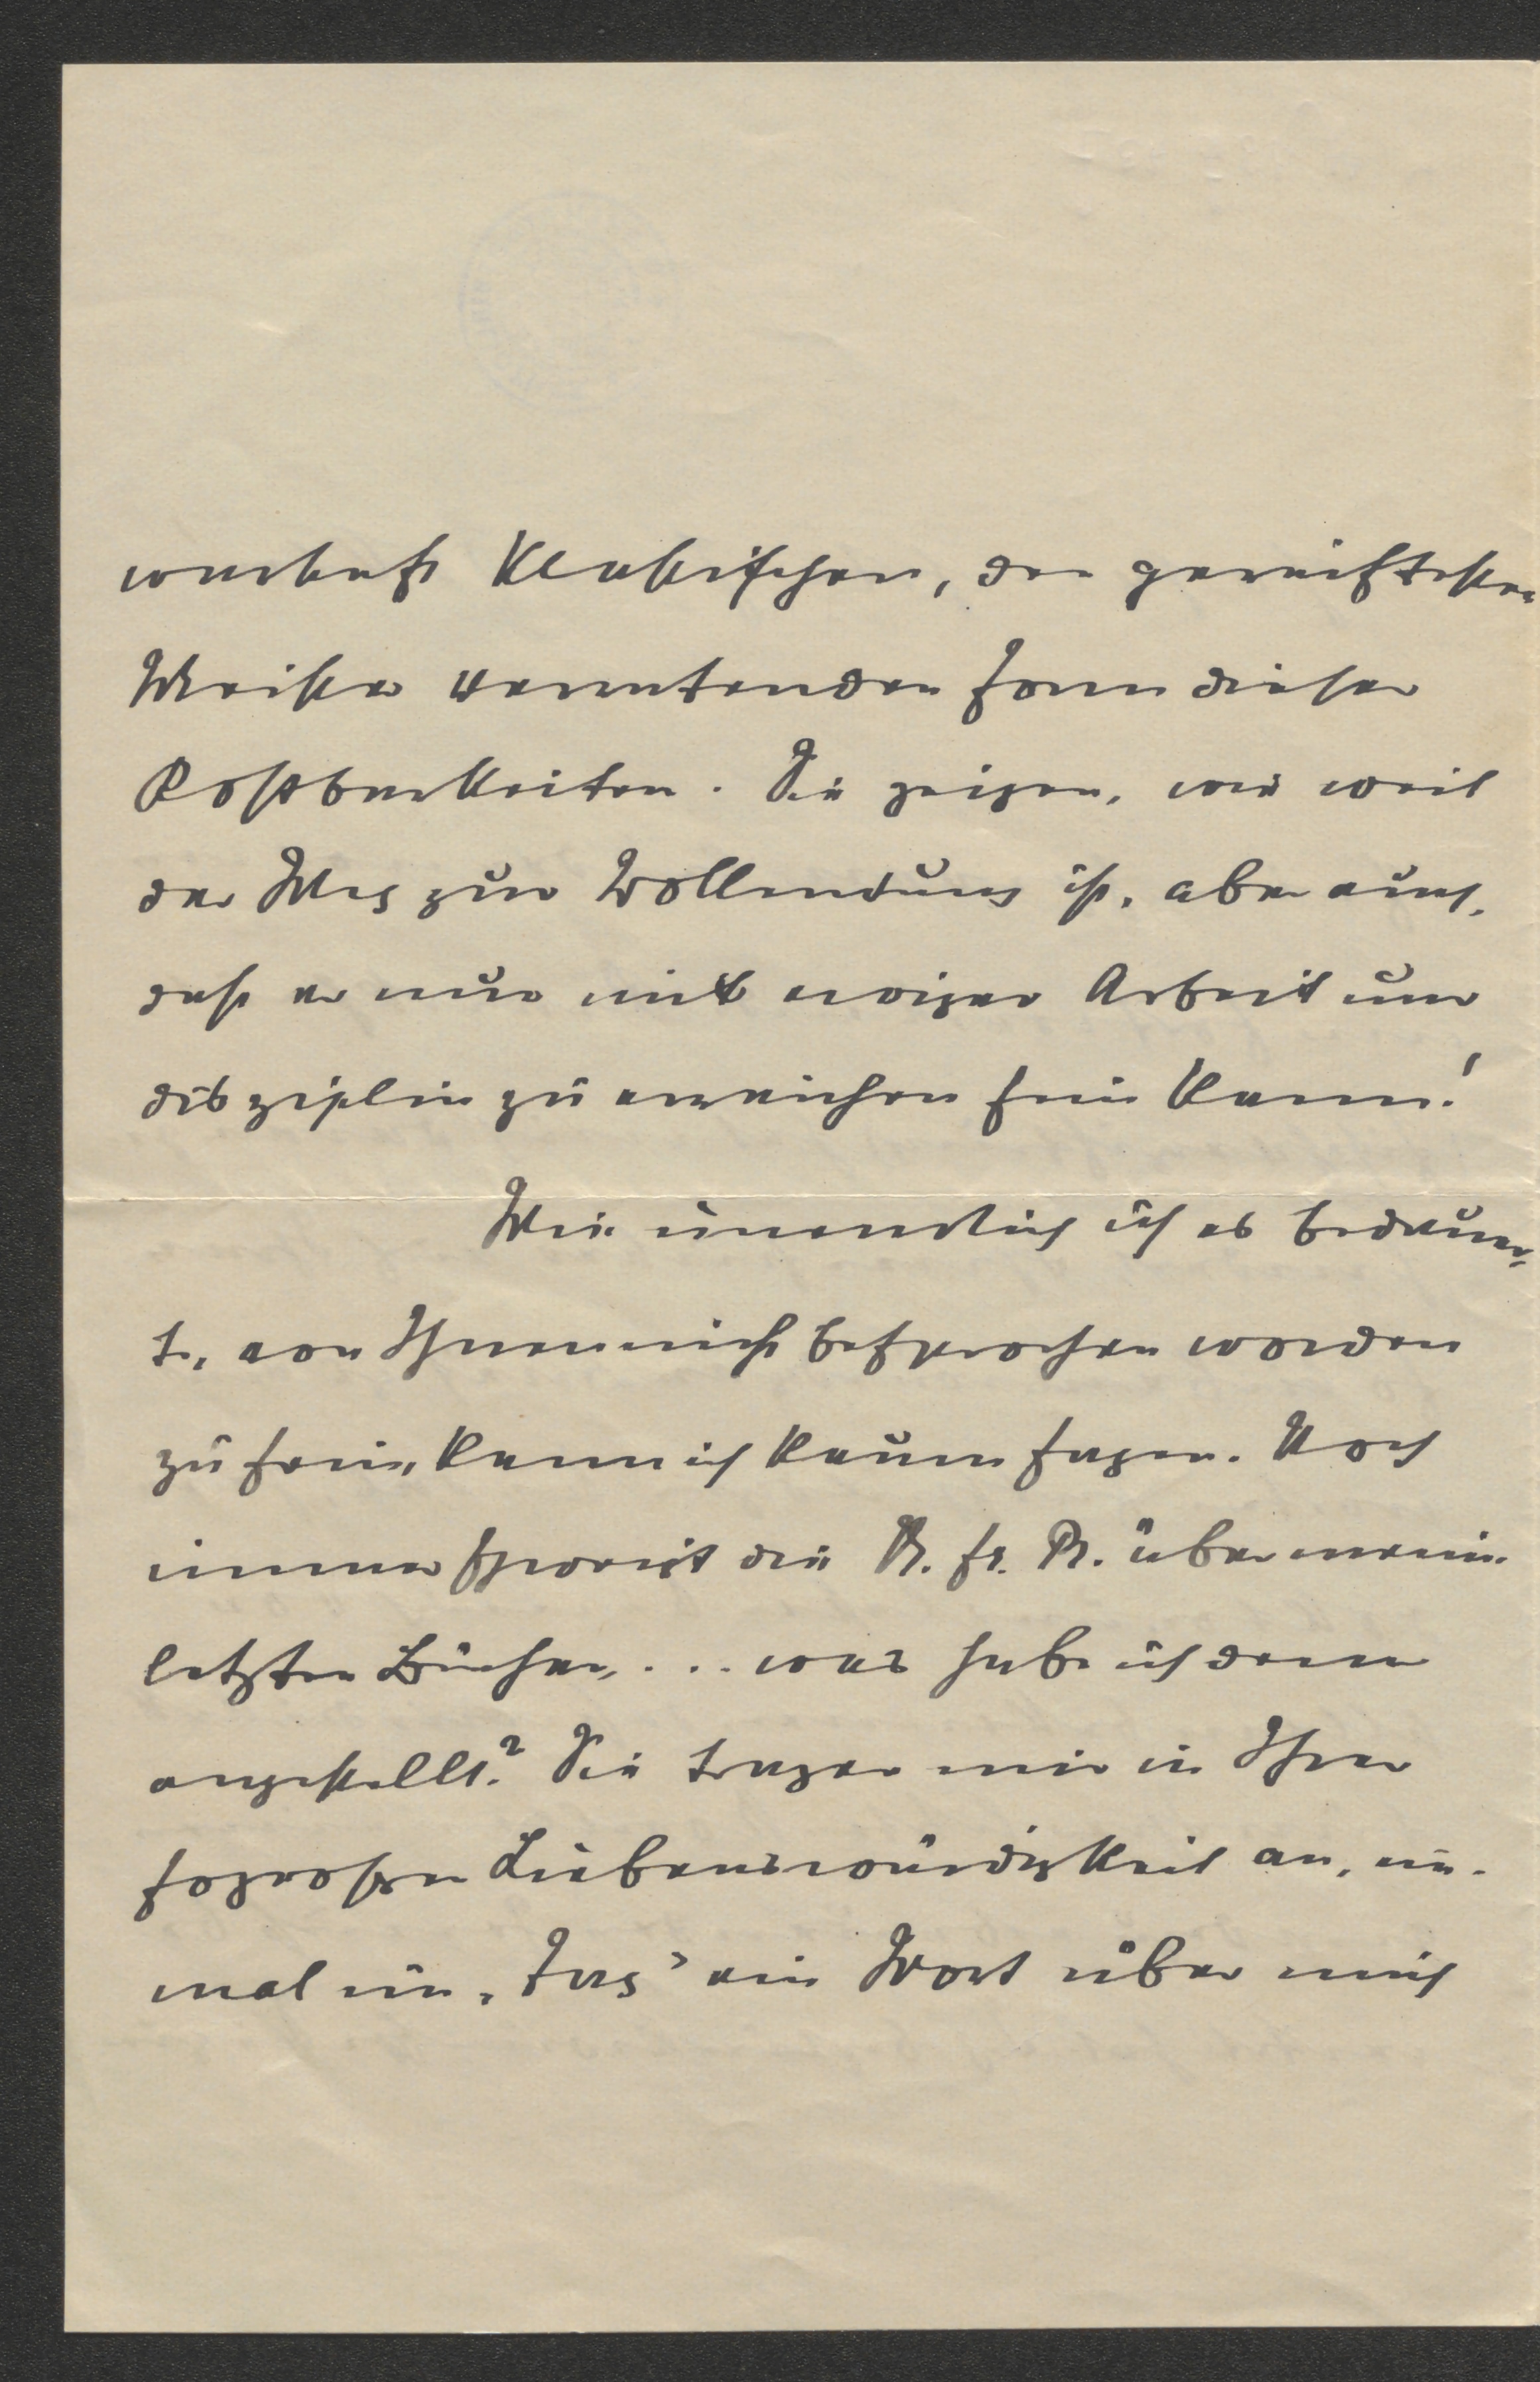 wahrhaft klassischen, den gereiftesten
Meister verratenden Form dieser
Kostbarkeiten. Sie zeigen, wie weit
der Weg zur Vollendung ist, aber auch,
dass er nur mit ewiger Arbeit und
disziplin zu erreichen sein kann!
Wie unendlich ich es bedauer-
te, von Ihnen nicht besprochen worden
zu sein, kann ich kaum sagen. Noch
immer schweigt die N. fr. Pr. über meine
letzten Bücher, . . . was habe ich denn
angestellt? Sie trugen mir in Ihrer
so grossen Liebenswürdigkeit an, ein-
mal im „Tag" ein Wort über mich